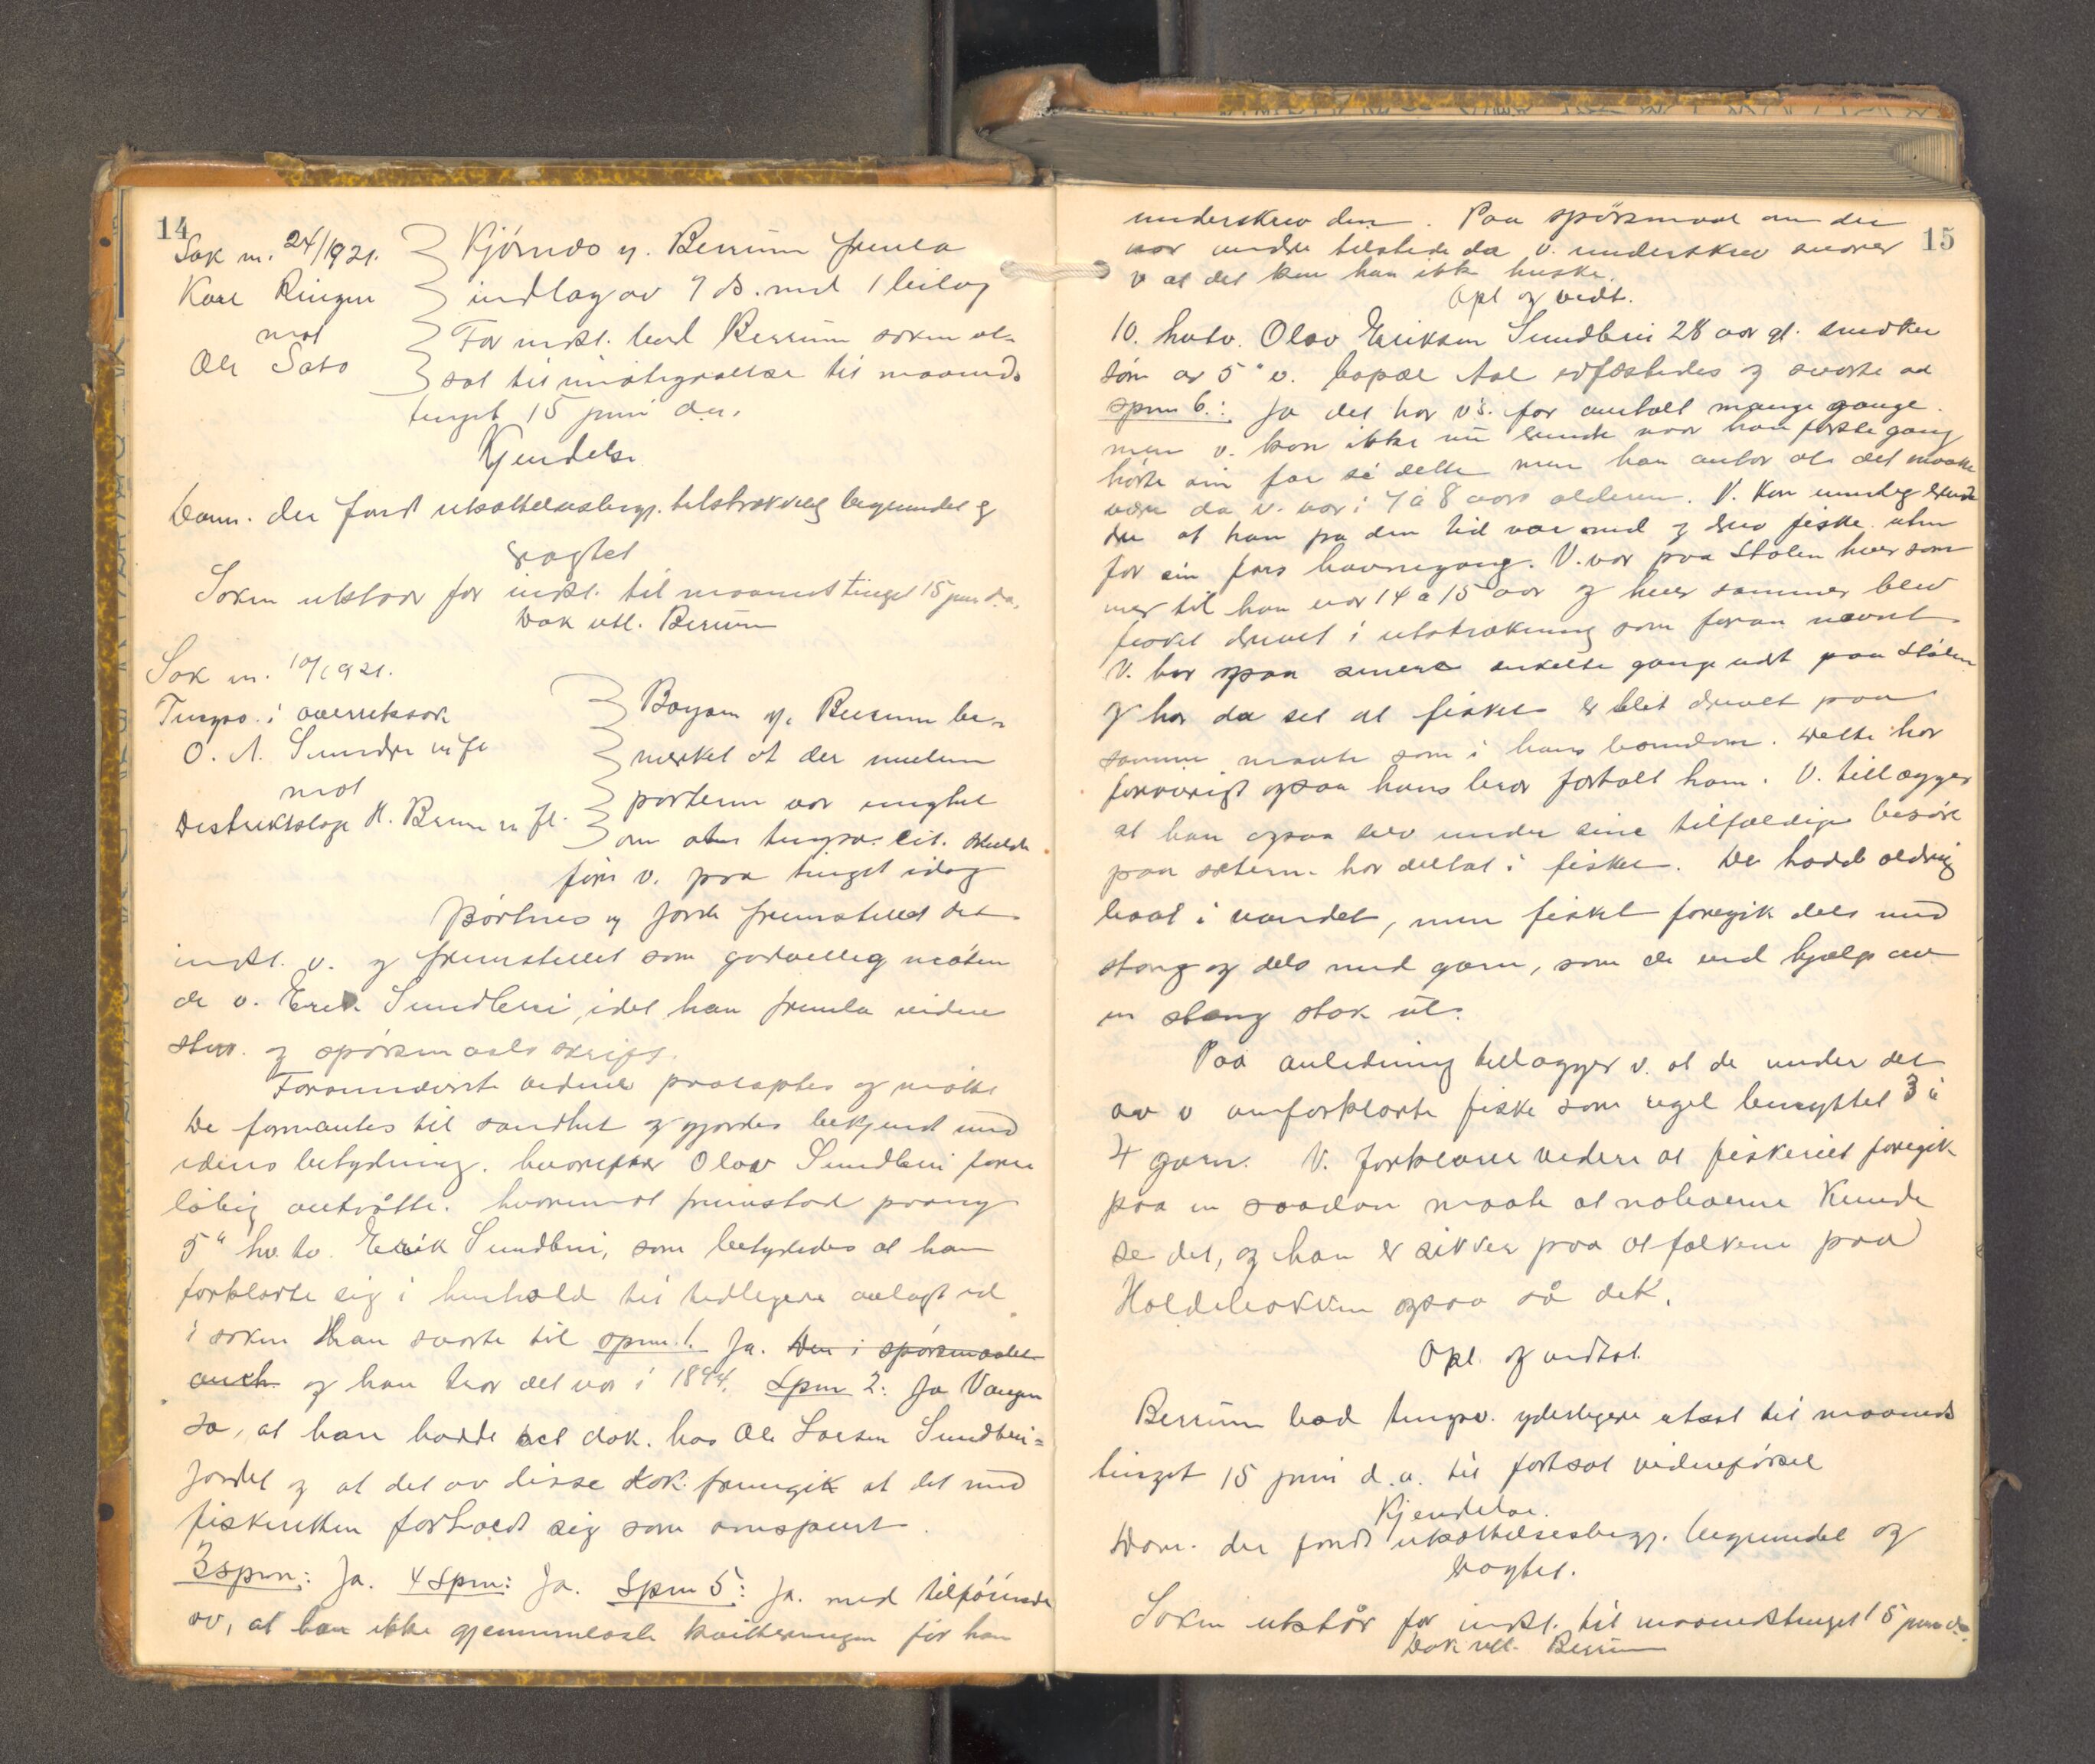 14
Sak nr. 24/1921.
Karl Ringen
mot
Ole Sato
Kjørnæs f. Berrum fremla
indlæg av 7 ds. med 1 bilag
For indst. bad Berrum saken ut-
sat til imøtegaaelse til maaneds
tinget 15 juni d.a.
Kjendelse
Dom. der fandt utsættelsesbegj. tilstrækkelig begrundet og
vagtet
Saken utstaar for indst. til maanedstinget 15 juni d.a.
Dok utl. Berrum
Sak nr. 10/1921.
Tingsv. i
O. A. Sundre m fl
mot
Distriktslæge H. Brun m fl.
f. Berrum be-
merket at der mellem
parterne var enighet
om at tingsv. cit. skulde
føre v. paa tinget idag
f. Jorde fremstillet det
indst. v. og fremstillet som godvillig møten
de v. Erik Sundbrei, idet han fremla vidne
stevn. og spørsmaalsskrift.
Forannævnte vidner paaraaptes og møtte
De formantes til sandhet og gjordes bekjendt med
edens betydning. hvorefter Olav Sundbrei fore
løbig avtraatte. hvorimot fremstod paany
5te hv. tv. Erik Sundbrei, som betydedes at han
forklarte sig i henhold til tidligere avlagt ed
i saken Han svarte til spm. 1. Ja. Den i spørsmaalet
anch og han tror det var i 1894. Spm 2: Ja Vangen
sa, at han hadde set dok. hos Ole Larsen Sundbrei-
jordet og at det av disse dok. fremgik at det med
fiskeretten forholdt sig som omspurt.
3 spm: Ja. 4 spm: Ja. Spm 5: Ja. med tilføiende
av, at han ikke gjennemlæste kvitteringen før han
15
underskrev den. Paa spørsmaal om der
var andre tilstede da v. underskrev svarer
v at det kan han ikke huske.
Opl og vedt.
10. hovedv. Olav Eriksen Sundbrei 28 aar gl. snedker
søn av 5te v. bopæl Aal edfæstedes og svarte ad
spm 6.: Ja det har v's. far fortalt mange gange.
men v. kan ikke nu erindre naar han første gang
hørte sin far si dette men han antar at det maatte
være da v. var i 7 à 8 aars alderen. V. kan imidlertid erin
dre at han fra den tid var med og drev fiske uten
for sin fars havnegang. V. var paa Stølen hver som
mer til han var 14 à 15 aar og hver sommer blev
fisket drevet i utstrækning som foran nævnt.
V. har ogsaa senere enkelte gange vært paa Stølen
og har da set at fisket er blit drevet paa
samme maate som i hans barndom. Dette har
forøvrigt ogsaa hans bror fortalt ham. V. tillægger
at han ogsaa selv under sine tilfældige besøk
paa sætern har deltat i fisket. De hadde aldrig
baat i vandet, men fisket foregik dels med
stang og dels med garn, som de ved hjælp av
en stang stak ut.
Paa anledning tillægger v. at de under det
av v omforklarte fiske som regel benyttet 3 à
4 garn. V. forklarer videre at fiskeriet foregik
paa en saadan maate at naboerne kunde
se det, og han er sikker paa at folkene paa
Haldebakken ogsaa så det.
Opl. og vedtat.
Berrum bad tingsv. yderligere utsat til maaneds
tinget 15 juni d.a. til fortsat vidneførsel
Kjendelse.
Dom. der fandt utsættelsesbegj. begrundet og
vagtet.
Saken utstår for indst. til maanedstinget 15 juni d.a.
Dok utl. Berrum